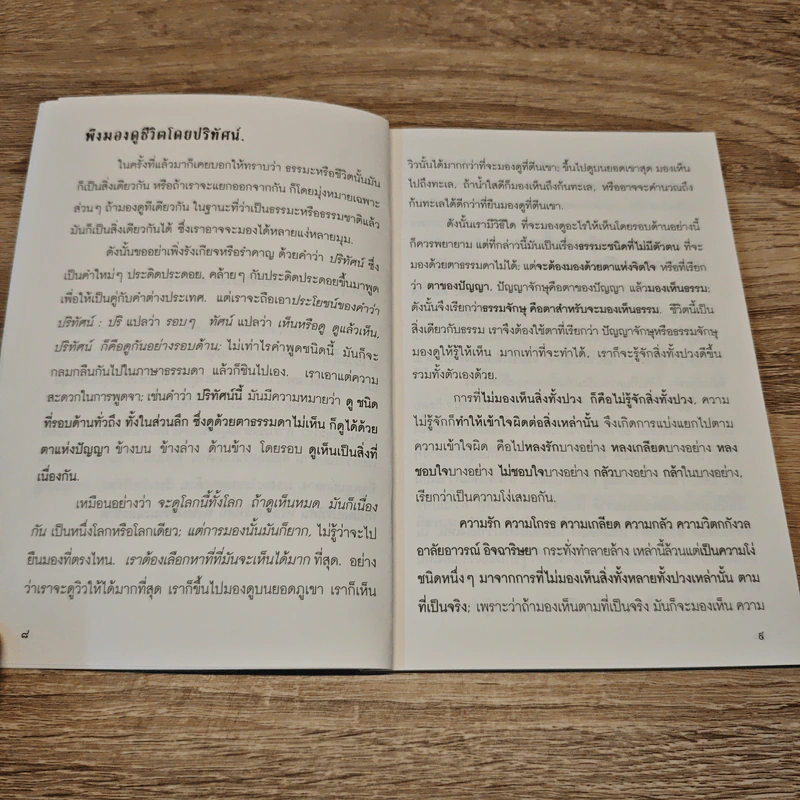 พึงมองดูชีวิตโดยปริทัศน์.
ในครั้งที่แล้วมาก็เคยบอกให้ทราบว่า ธรรมะหรือชีวิตนั้นมัน
ก็เป็นสิ่งเดียวกัน หรือถ้าเราจะแยกออกจากกัน ก็โดยมุ่งหมายเฉพาะ
ส่วนๆ ถ้ามองดูทีเดียวกัน ในฐานะที่ว่าเป็นธรรมะหรือธรรมชาติแล้ว
มันก็เป็นสิ่งเดียวกันได้ ซึ่งเราอาจจะมองได้หลายแง่หลายมุม.
ดังนั้นขออย่าเพิ่งรังเกียจหรือรำคาญ ด้วยคำว่า ปริทัศน์ ซึ่ง
เป็นคำใหม่ๆ ประดิดประดอย, คล้ายๆ กับประดิดประดอยขึ้นมาพูด
เพื่อให้เป็นคู่กับคำต่างประเทศ. แต่เราจะถือเอาประโยชน์ของคำว่า
ปริทัศน์ : ปริ แปลว่า รอบๆ ทัศน์ แปลว่า เห็นหรือดู ดูแล้วเห็น.
ปริทัศน์ ก็คือดูกันอย่างรอบด้าน; ไม่เท่าไรคำพูดชนิดนี้ มันก็จะ
กลมกลืนกันไปในภาษาธรรมดา แล้วก็ชินไปเอง. เราเอาแต่ความ
สะดวกในการพูดจา; เช่นคำว่า ปริทัศน์นี้ มันมีความหมายว่า ดู ชนิด
ที่รอบด้านทั่วถึง ทั้งในส่วนลึก ซึ่งดูด้วยตาธรรมดาไม่เห็น ก็ดูได้ด้วย
ตาแห่งปัญญา ข้างบน ข้างล่าง ด้านข้าง โดยรอบ ดูเห็นเป็นสิ่งที่
เนื่องกัน.
เหมือนอย่างว่า จะดูโลกนี้ทั้งโลก ถ้าดูเห็นหมด มันก็เนื่อง
กัน เป็นหนึ่งโลกหรือโลกเดียว; แต่การมองนั้นมันก็ยาก, ไม่รู้ว่าจะไป
ยืนมองที่ตรงไหน. เราต้องเลือกหาที่ที่มันจะเห็นได้มาก ที่สุด. อย่าง
ว่าเราจะดูวิวให้ได้มากที่สุด เราก็ขึ้นไปมองดูบนยอดภูเขา เราก็เห็น
๘
วิวนั้นได้มากกว่าที่จะมองดูที่ตีนเขา; ขึ้นไปดูบนยอดเขาสุด มองเห็น
ไปถึงทะเล. ถ้าน้ำใสดีก็มองเห็นถึงก้นทะเล, หรืออาจจะคำนวณถึง
ก้นทะเลได้ดีกว่าที่ยืนมองดูที่ตีนเขา.
ดังนั้นเรามีวิธีใด ที่จะมองดูอะไรให้เห็นโดยรอบด้านอย่างนี้
ก็ควรพยายาม แต่ที่กล่าวนี้มันเป็นเรื่องธรรมะชนิดที่ไม่มีตัวตน ที่จะ
มองด้วยตาธรรมดาไม่ได้; แต่จะต้องมองด้วยตาแห่งจิตใจ หรือที่เรียก
ว่า ตาของปัญญา. ปัญญาจักษุคือตาของปัญญา แล้วมองเห็นธรรม;
ดังนั้นจึงเรียกว่าธรรมจักษุ คือตาสำหรับจะมองเห็นธรรม. ชีวิตนี้เป็น
สิ่งเดียวกับธรรม เราจึงต้องใช้ตาที่เรียกว่า ปัญญาจักษุหรือธรรมจักษุ
มองดูให้รู้ให้เห็น มากเท่าที่จะทำได้. เราก็จะรู้จักสิ่งทั้งปวงดีขึ้น
รวมทั้งตัวเองด้วย.
การที่ไม่มองเห็นสิ่งทั้งปวง ก็คือไม่รู้จักสิ่งทั้งปวง, ความ
ไม่รู้จักก็ทำให้เข้าใจผิดต่อสิ่งเหล่านั้น จึงเกิดการแบ่งแยกไปตาม
ความเข้าใจผิด คือไปหลงรักบางอย่าง หลงเกลียดบางอย่าง หลง
ชอบใจบางอย่าง ไม่ชอบใจบางอย่าง กลัวบางอย่าง กล้าในบางอย่าง,
เรียกว่าเป็นความโง่เสมอกัน.
ความรัก ความโกรธ ความเกลียด ความกลัว ความวิตกกังวล
อาลัยอาวรณ์ อิจฉาริษยา กระทั่งทำลายล้าง เหล่านี้ล้วนแต่เป็นความโง่
ชนิดหนึ่งๆ มาจากการที่ไม่มองเห็นสิ่งทั้งหลายทั้งปวงเหล่านั้น ตาม
ที่เป็นจริง; เพราะว่าถ้ามองเห็นตามที่เป็นจริง มันก็จะมองเห็น ความ
๙